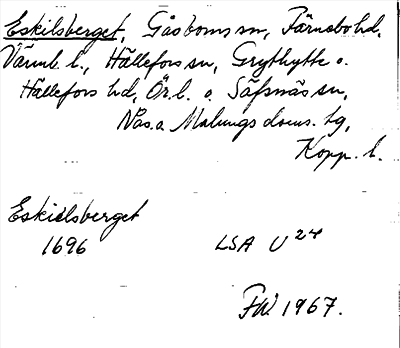 Eskilsberget, Gåsborns sn, Färnebo hd,
Värml. l., Hällefors sn, Grythytte o.
Hällefors hd, Ör. l. o. Säfsnäs sn,
Nås o. Malungs doms. tg,
Kopp. l.
Eskielsberget
1696 LSA U 24
FW 1967.